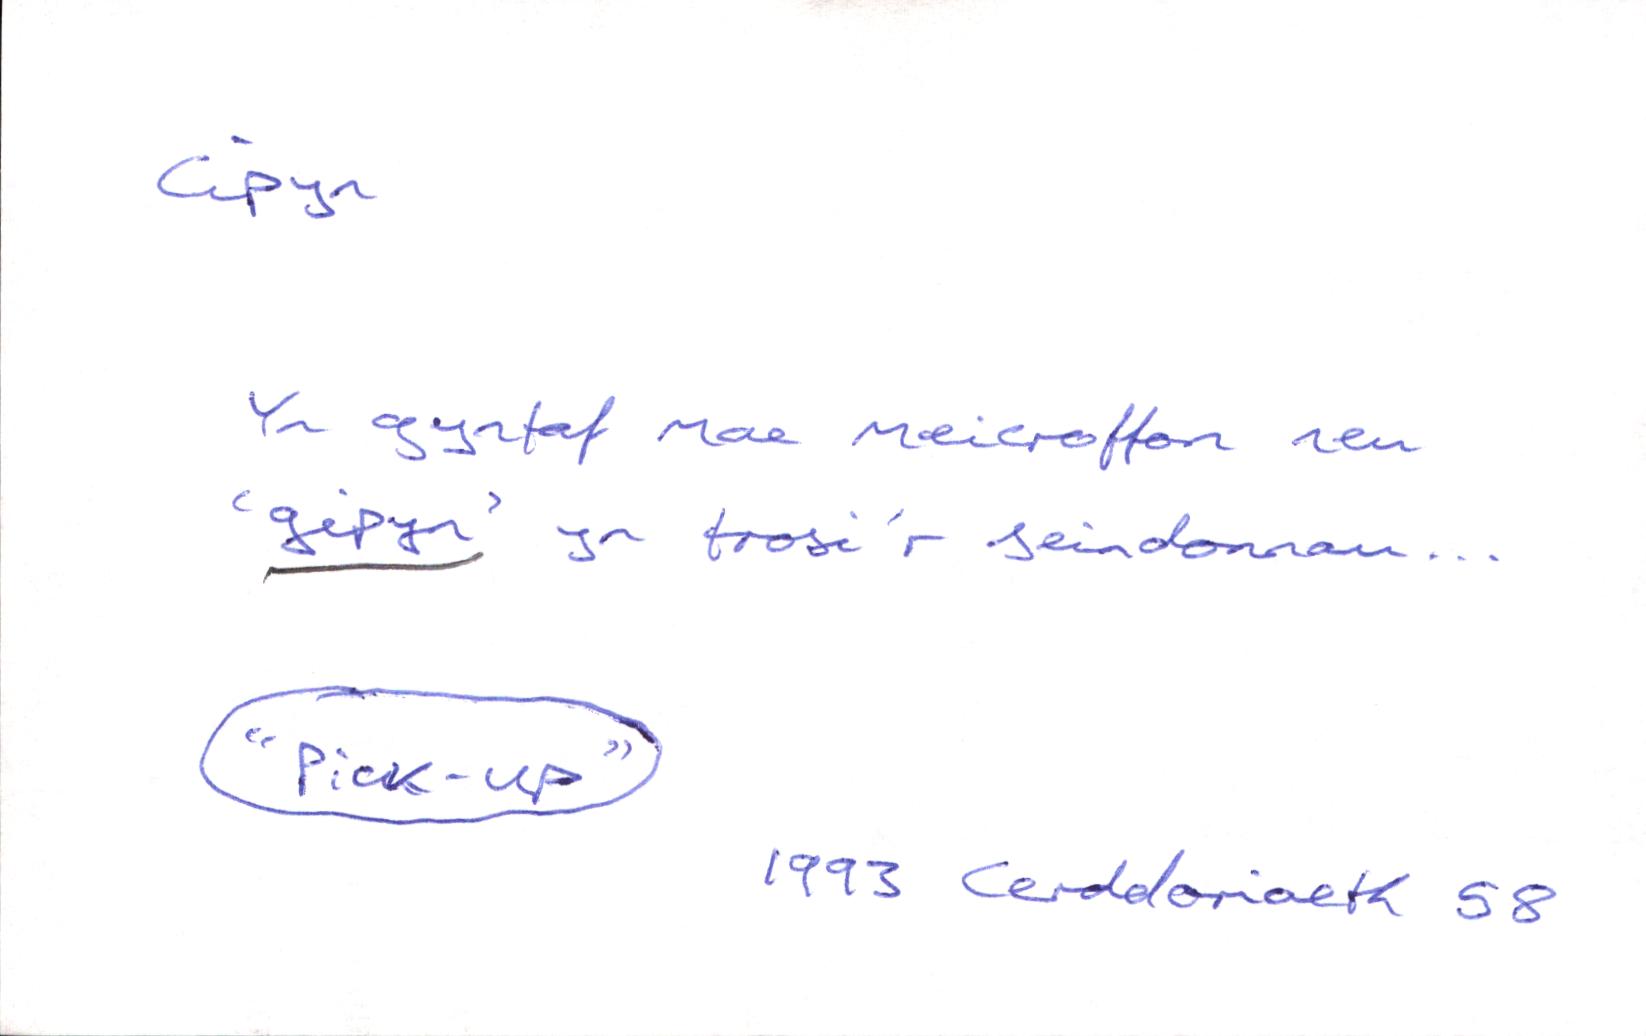 Cipyn
Yn gyntaf mae meicroffon neu
'gipyn' yn trosi'r seindonnau...
"Pick-up"
1993 Cerddoriaeth 58